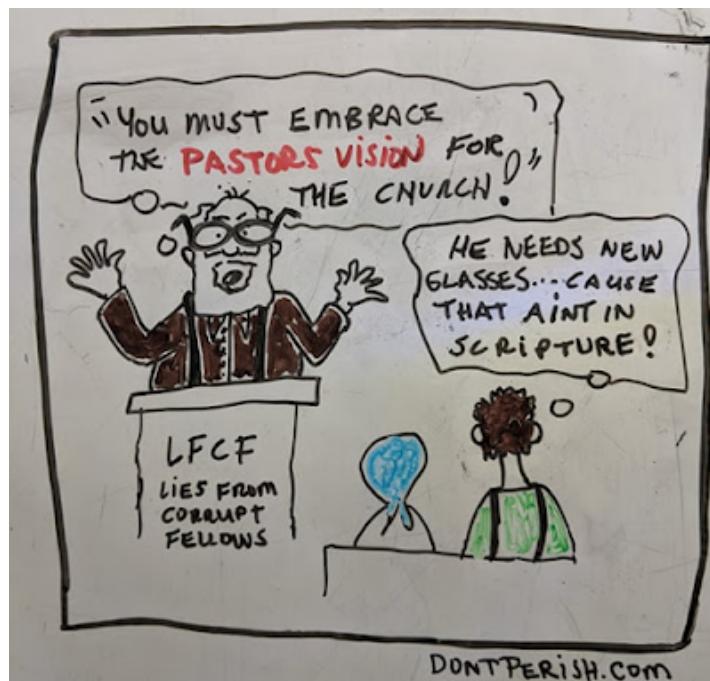 "YOU MUST EMBRACE
THE PASTORS VISION FOR
THE CHURCH!"
HE NEEDS NEW
GLASSES... CAUSE
THAT AINT IN
SCRIPTURE!
LFCF
LIES FROM
CORRUPT
FELLOWS
DONTPERISH.COM